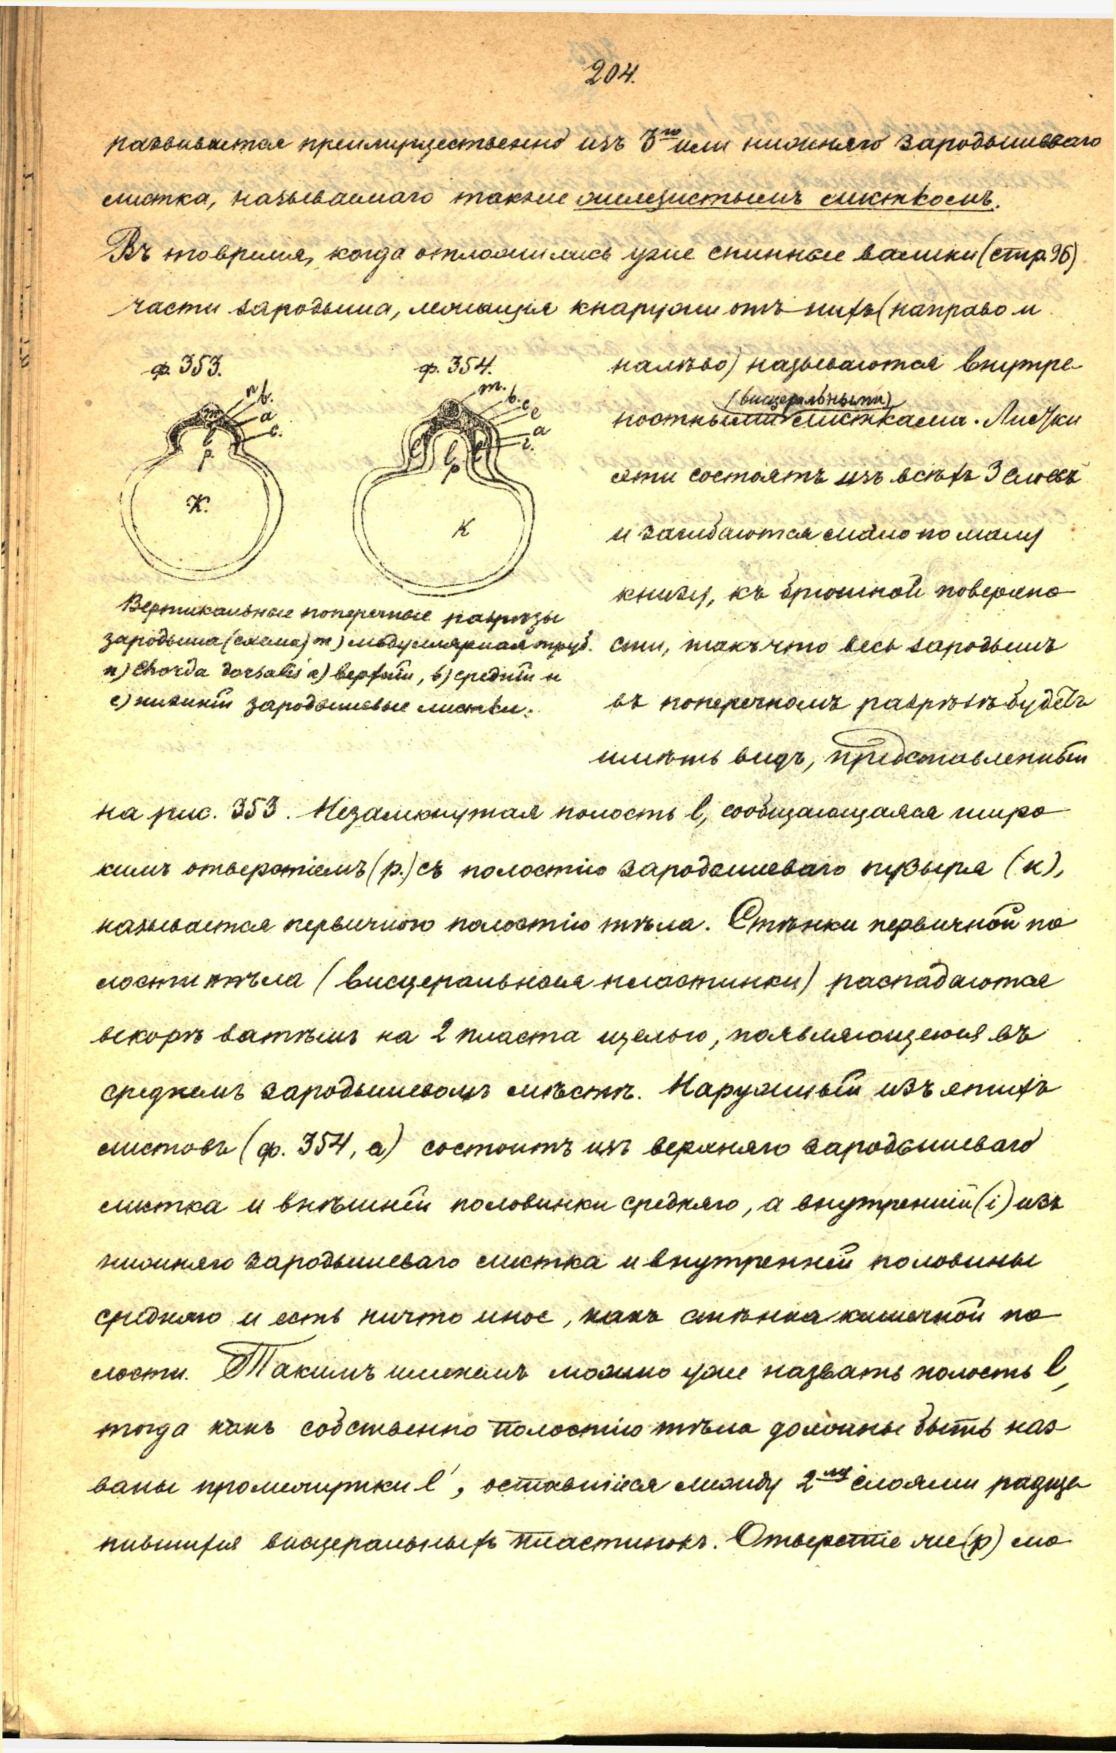 204.
развивается преимущественно изъ 3го или нижняго зародышеваго
листка, называемаго также железистымъ листкомъ.
Въ то время, когда отложились уже спинные валики (стр. 96)
части зародыша, лежащія кнаружи отъ нихъ (направо и
ф. 353.
ф. 354.
n
b.
a
c.
l
p.
К.
m.
b.
c
e
a
i.
l
p
К
Вертикальные поперечные разрѣзы
зародыша (схема) m) медуллярная труб.
n) Chorda dorsalis a) верхній, b) средній и
c) нижній зародышевые листки.
налѣво) называются внутре-
(висцеральными)
ностными листками. Листки
эти состоятъ изъ всѣхъ 3 слоевъ
и загибаются мало по малу
книзу, къ брюшной поверхно-
сти, такъ что весь зародышъ
въ поперечномъ разрѣзѣ будетъ
имѣть видъ, представленный
на рис. 353. Незамкнутая полость l, сообщающаяся широ-
кимъ отверстіемъ (p.) съ полостію зародышеваго пузыря (к),
называется первичною полостію тѣла. Стѣнки первичной по-
лости тѣла (висцеральныя пластинки) распадаются
вскорѣ затѣмъ на 2 пласта щелью, появляющеюся въ
среднемъ зародышевомъ листѣ. Наружный изъ этихъ
листовъ (ф. 354, a) состоитъ изъ верхняго зародышеваго
листка и внѣшней половинки средняго, а внутренній (i) изъ
нижняго зародышеваго листка и внутренней половины
средняго и есть ничто иное, какъ стѣнка кишечной по-
лости. Такимъ именемъ можно уже назвать полость l,
тогда какъ собственно полостію тѣла должны быть наз-
ваны промежутки l', оставшіеся между 2мя слоями расще-
пившихся висцеральныхъ пластинокъ. Отверстіе же (p) ма-